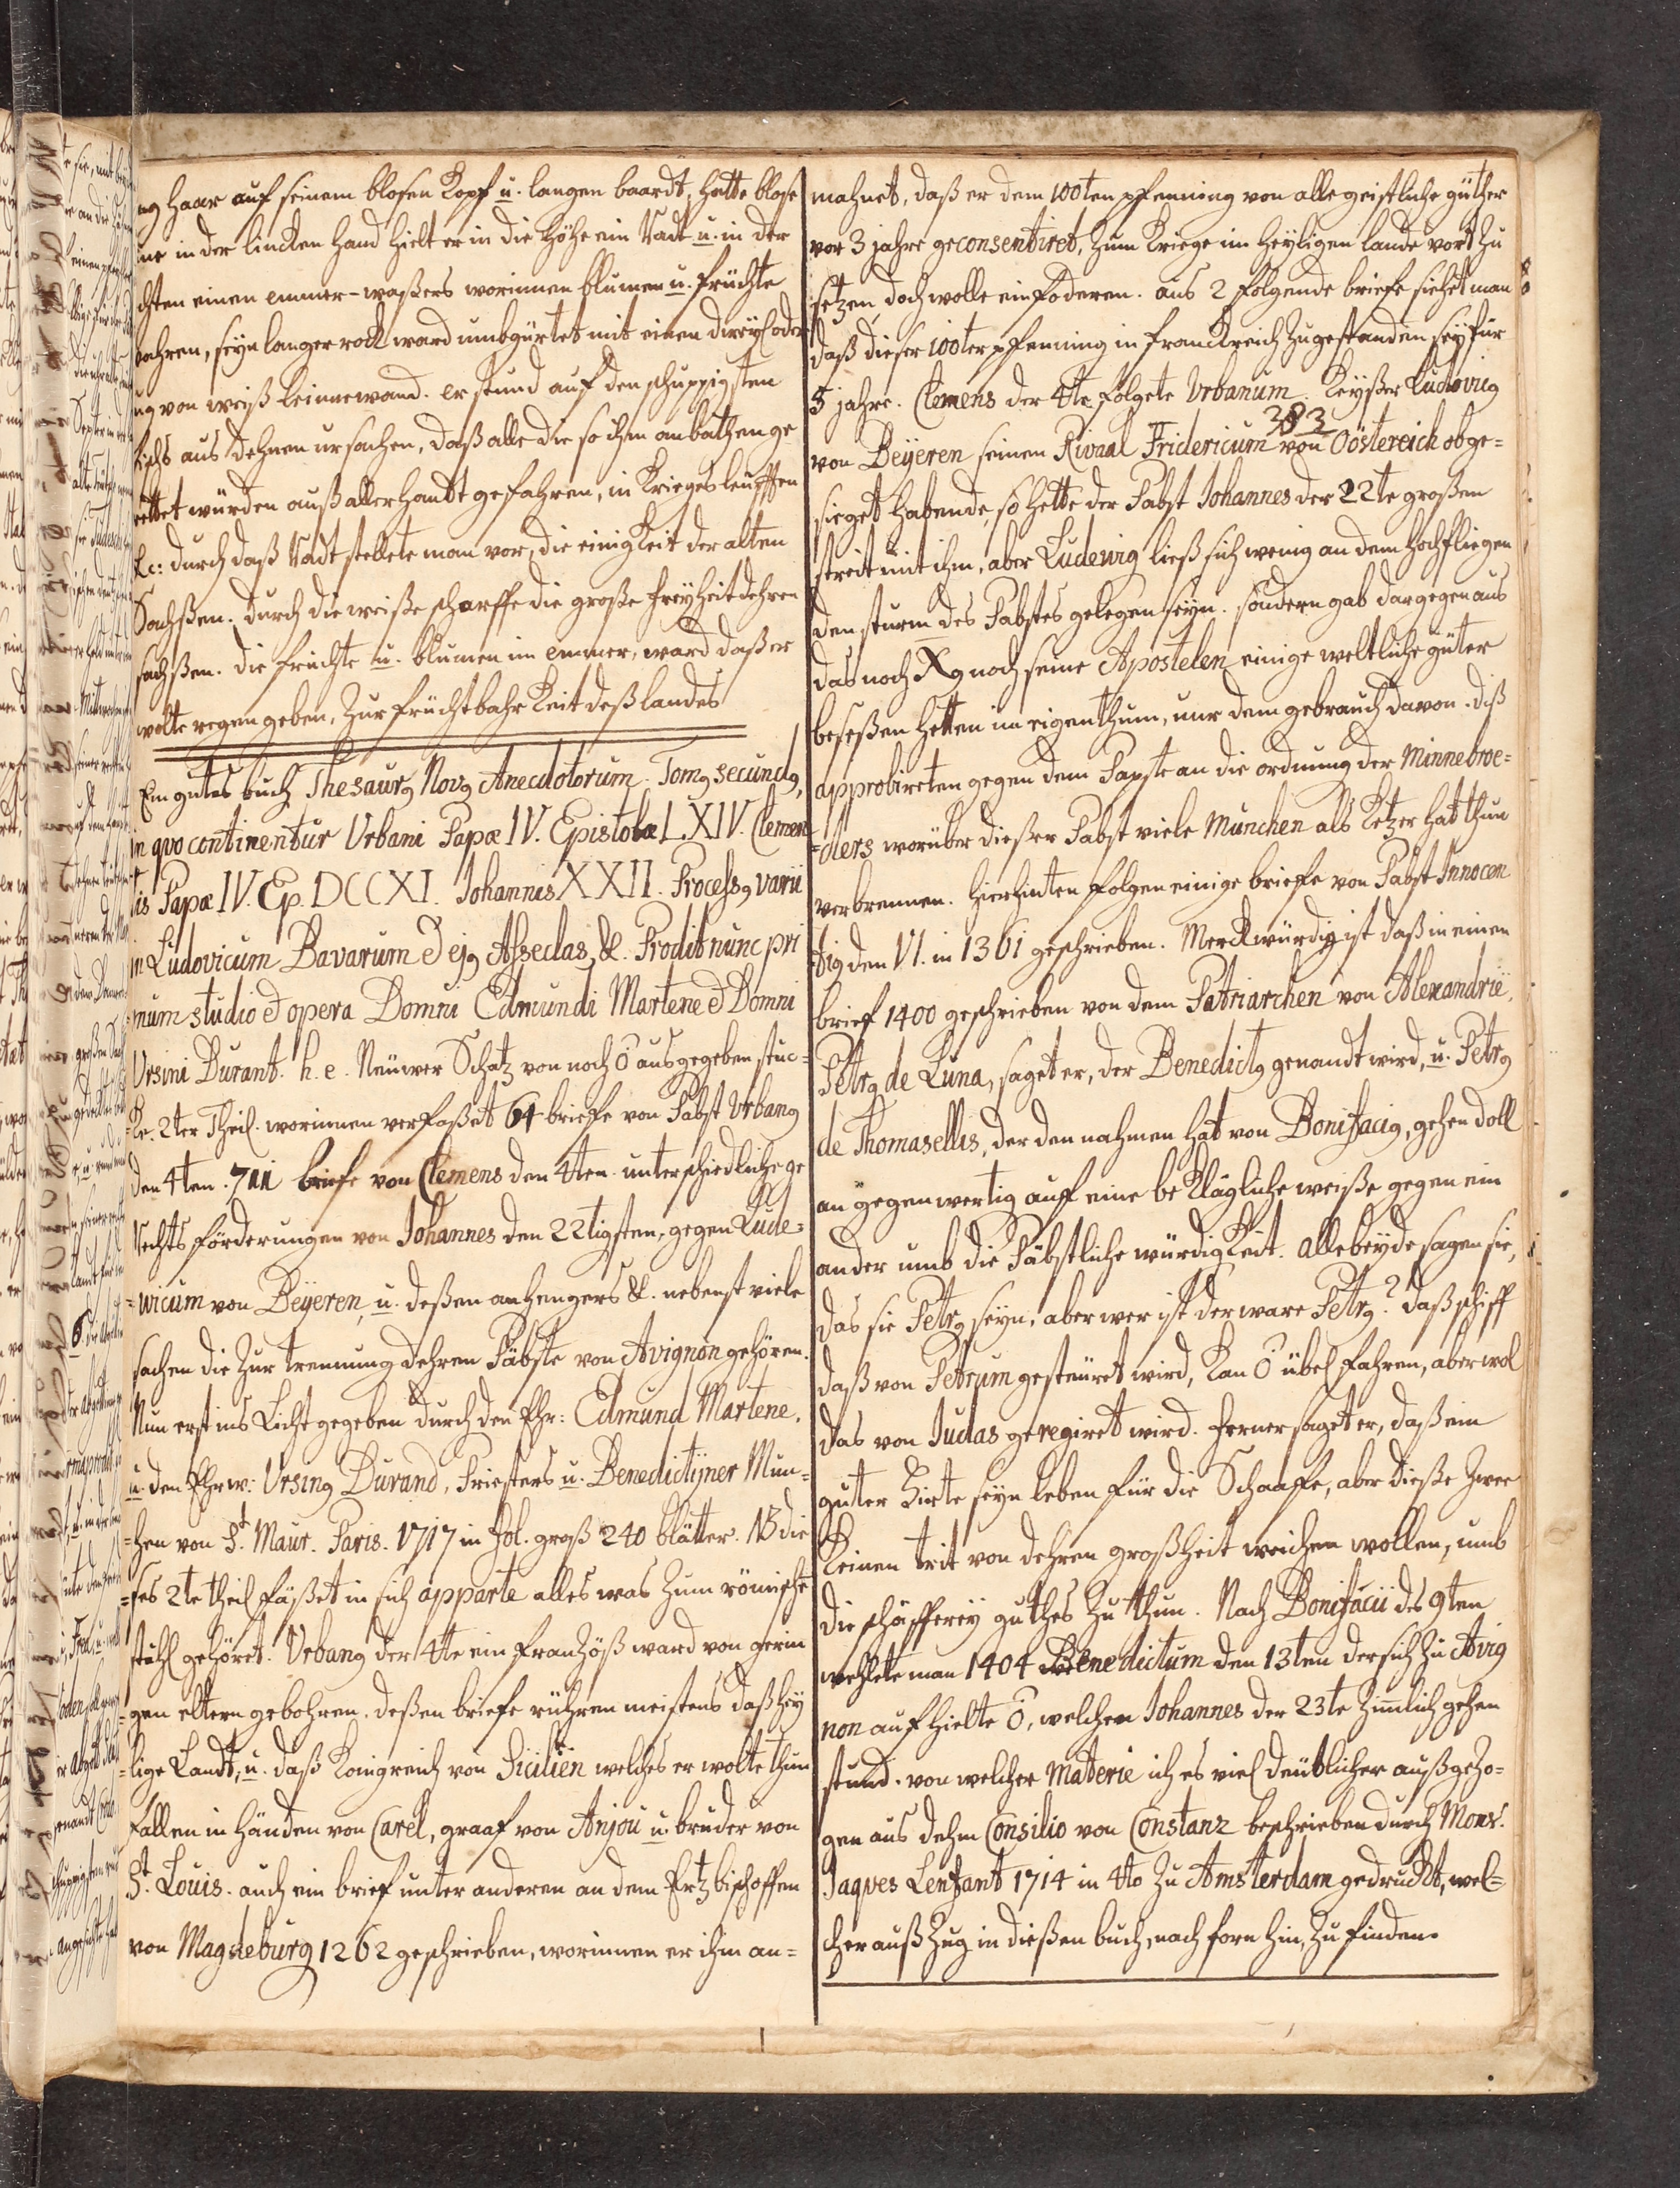 ng haar auf seinem blosen Kopf u. langen baardt, hatte blose
ne in der lincken hand hielt er in die höhe ein Radt u. in der
chten einen emmer-waßers worinnen blumen u. früchte
wahren, seyn langer rock ward umbgürtet mit einen
ng von weiß Leinnewand. er stund auf den schuppigsten
Fisch aus dehnen ursachen, daß alle die so ihm anbathen ge
rettet würden auß allerhandt gefahren, in Krieges leüfften
&c: durch daß Radt stellete man vor, die einigkeit der alten
Sachßen. durch die weiße scharffe die große freyheit dehren
sachßen. die früchte u. blumen im emmer, ward daß er
wolte regen geben, Zur früchtbahrkeit deß landes
Ein gutes buch Thesaurg Novg Anecdotorum. Tomg secundg,
in qvo continentur Urbani Papæ IV. Epistolæ LXIV. Clemen
tis Papæ IV. Ep. DCCXI. Johannis XXII. Processg varii
in Ludovicum Bavarum & ejg Asseclas, &. Prodit nunc pri
mum studio & opera Domni Edmundi Martene & Domni
Ursini Durant. h. e. Neuwer Schatz von noch ō ausgegeben stuc=
ke. 2ter Theil. worinnen verfaßet 64 briefe von Pabst Urbang
den 4ten. 711 briefe von Clemens den 4ten. unterschiedliche ge
rechts förderungen von Johannes den 22tigsten, gegen Lude=
=wicum von Beyeren, u. deßen anhengers &. nebenst viele
sachen die Zur trennung dehren Päbste von Avignon gehören.
Nun erst ins Licht gegeben durch den Ehr: Edmund Martene,
u. den Ehrw: Ursing Durand, Priesters u. Benedictijner Mun=
=chen von St. Maur. Paris. 1717 in fol. groß 240 blätter. NB die
=ses 2te theil faßet in sich apparte alles was zum römische
stuhl gehöret. Urbang der 4te ein Franzöß ward von gerin
=gen eltern gebohren. deßen briefe rühren meistens daß hey
=lige Landt, u. daß Konigreich von Sicilien welches er wolte thun
fallen in händen von Carel, graaf von Anjou u. bruder von
St. Louis. auch ein brief unter anderen an dem Ertzbischoffen
von Magdeburg 1262 geschrieben, worinnen er ihm an=
mahnet, daß er dem 100ten pfenning von alle geistliche güther
vor 3 jahre geconsentiret, zum Kriege im heyligen lande vort zu
setzen, doch wolle einfoderen. aus 2 folgende briefe siehet man
daß dieser 100ter pfenning in franckreich zugestanden sey für
5 jahre. Clemens der 4te folgete Urbanum. Keyßer Ludovicg
383
von Beyeren seinen Rivaal Fridericum von Oöstereich obge=
sieget habende, so hette der Pabst Johannes der 22te großen
streit mit ihm, aber Ludewig ließ sich wenig an dem hochfliegen
den sturm des Pabstes gelegen seyn. sondern gab dargegen aus
das noch Xg noch seine Apostelen einige weltliche güter
beseßen hetten im eigenthum, nur dem gebrauch davon. diß
approbireten gegen dem Papste an die ordnung der Minnebroe=
=ders worüber dießer Pabst viele Munchen als Ketzer hat thun
verbrennen. hierhinten folgen einige briefe von Pabst Innocen
tig den VI. in 1361 geschrieben. Merckwürdig ist daß in einen
brief 1400 geschrieben von dem Patriarchen von Alexandrië,
Petrg de Luna, saget er, der Benedictg genandt wird, u. Petrg
de Thomasellis, der den nahmen hat von Bonifacig, gehen doll
an gegenwertig auf eine beklägliche weiße gegen ein
ander umb die Päbstliche würdigkeit. alle beyde sagen sie,
das sie Petrg seyn, aber wer ist der ware Petrg? daß schiff
daß von Petrum gesteuret wird, kan ō übel fahren, aber wol
das von Judas geregiret wird. ferner saget er, daß ein
guter Hirte seyn leben für die Schaafe, aber dieße zwee
keinen trit von dehren großheit weichen wollen, umb
die schäfferey guthes zu thun. Nach Bonifacii des 9ten
wehlete man 1404 Benedictum den 13ten der sich zu Avig
non aufhielte ō, welchen Johannes der 23te zimlich gehen
stund. von welcher Materie ich es viel deutlicher außgezo=
gen aus dehm Consilio von Constanz beschrieben durch Monsr.
Jaqves Lenfant 1714 in 4to zu Amsterdam gedruckt, wel=
cher außzug in dießen buch, nach forn hin, zu finden.